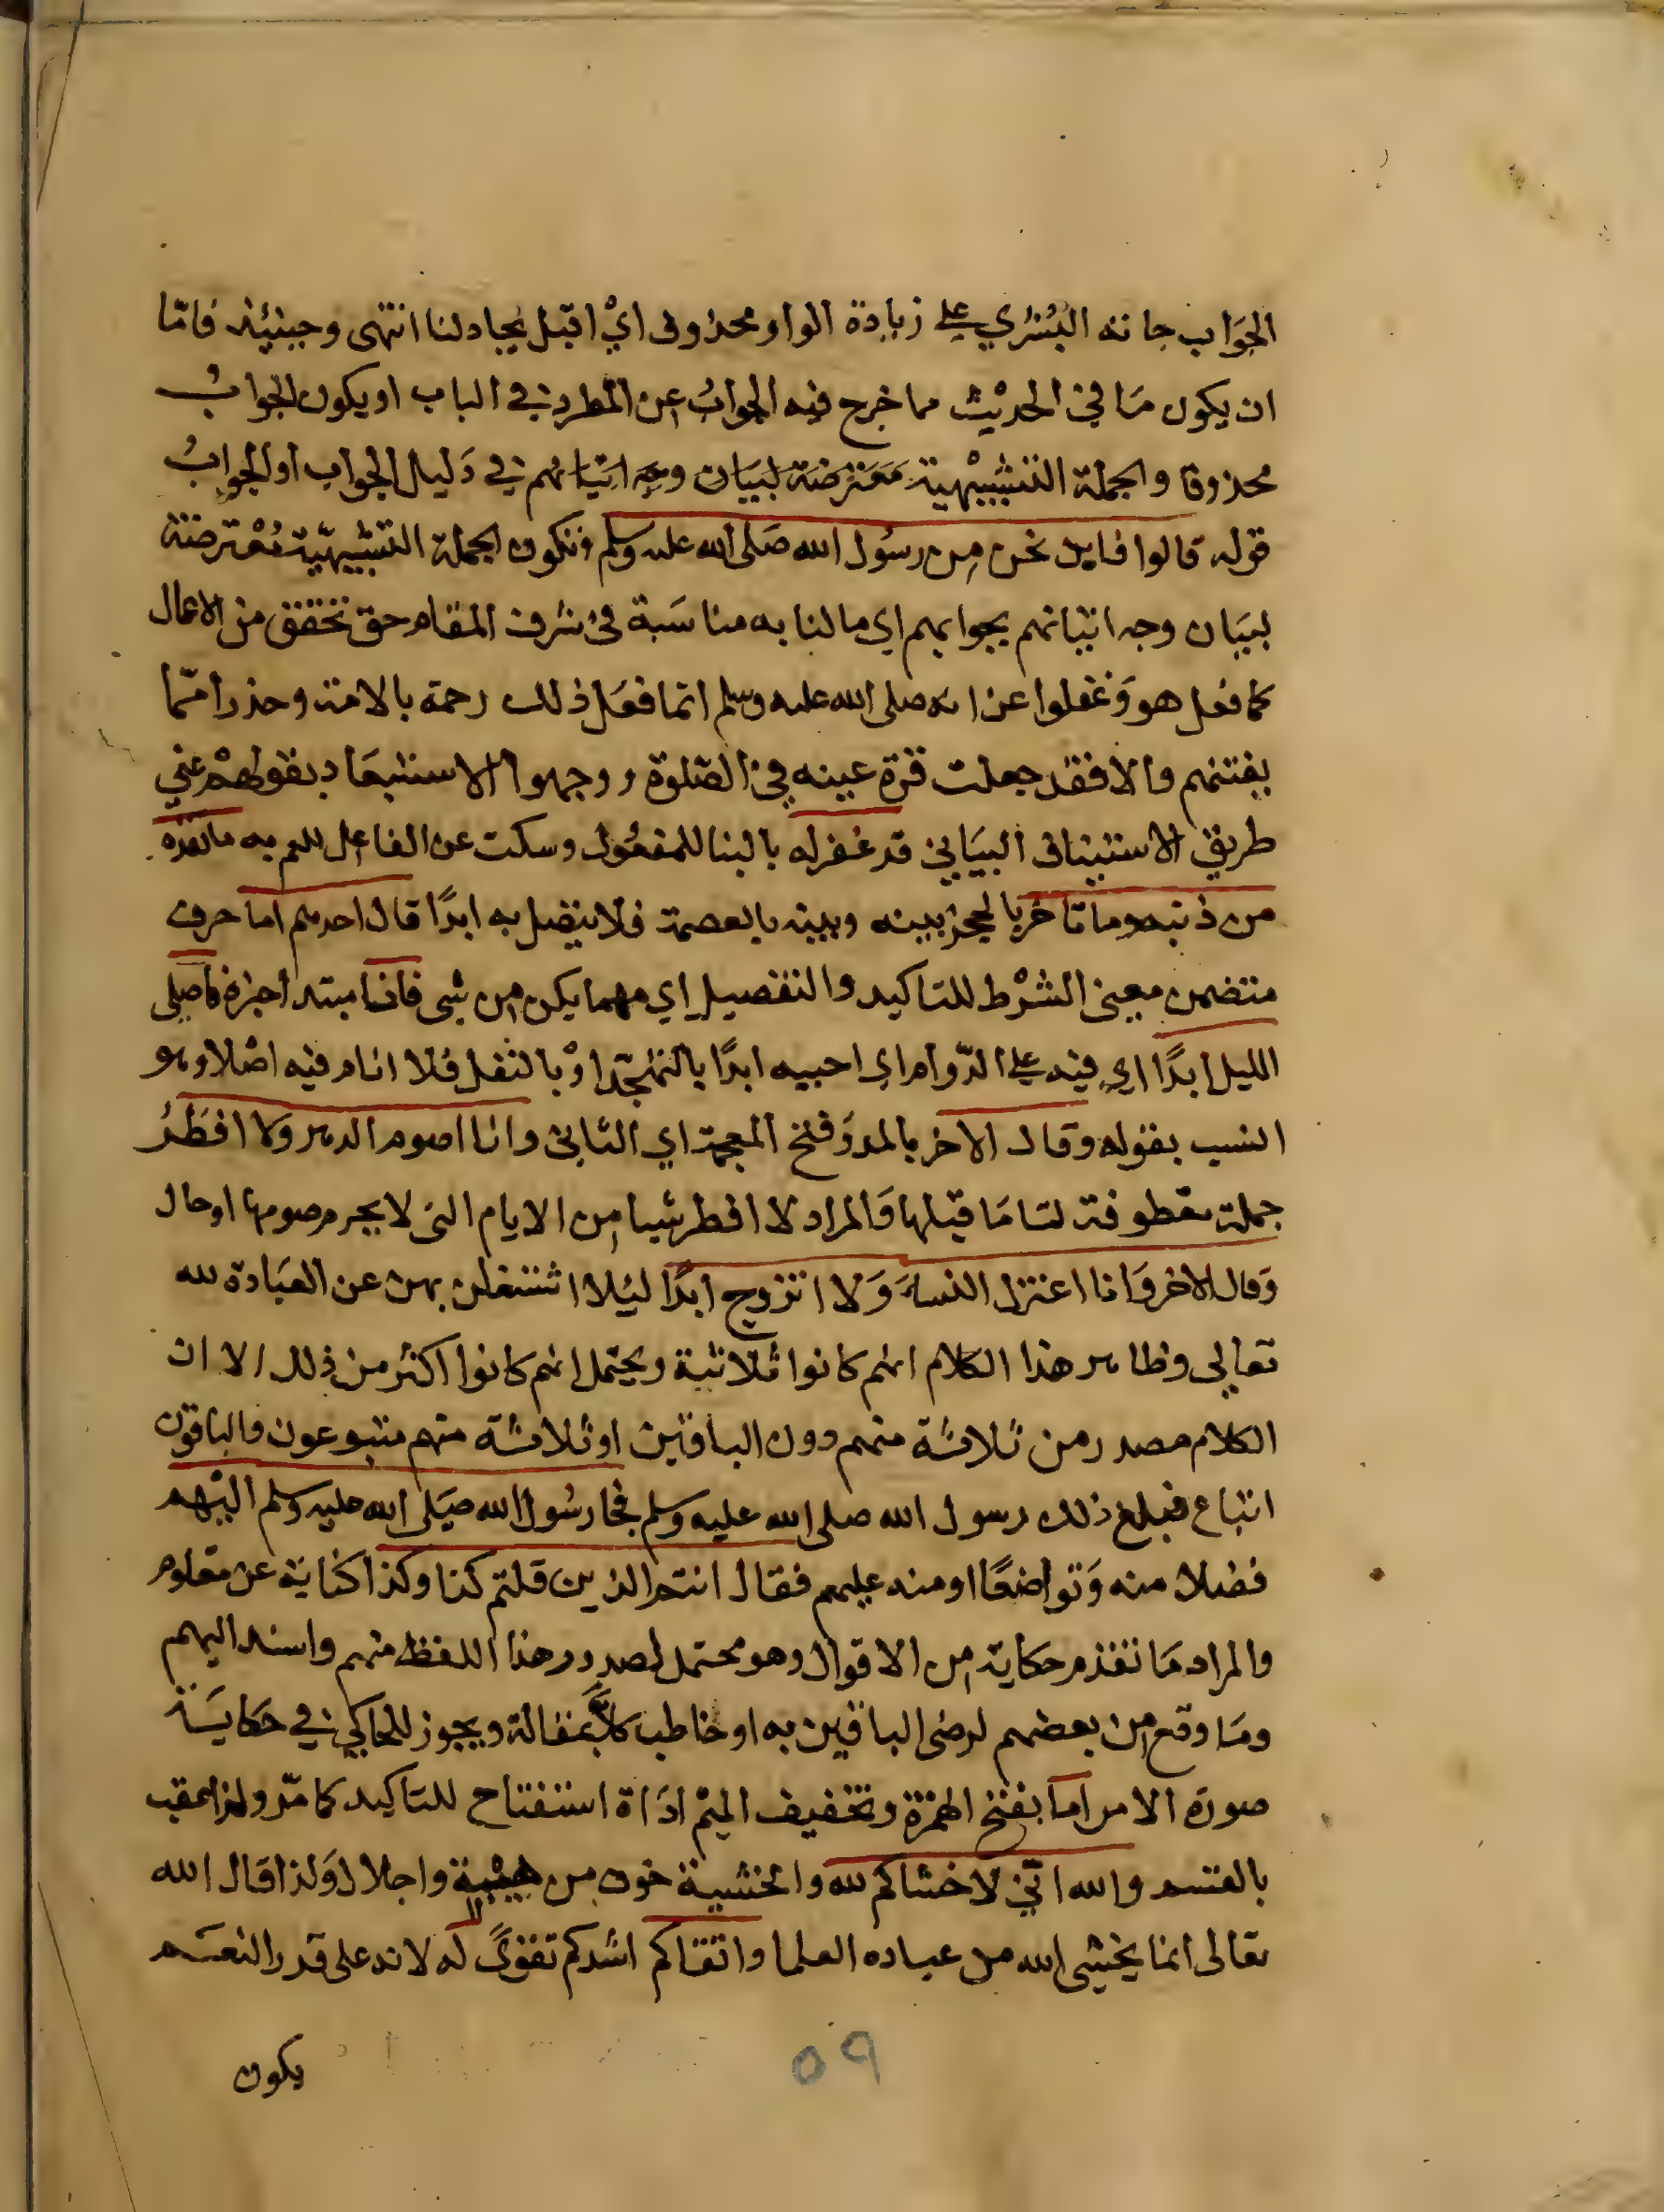 الجَوَاب جاته البُشري علي زيادة الواو محذوف ايْ اقبل يجادلنا انتهى وحينئِذ فامّا
ان يكون مَا في الحديْث مما خرج فيه الجوابُ عن المطرد في الباب او يكون الجوابُ
محذوفا والجملة التشبيْهية مَعترضة لبيَان وجه اتيانهم في دَليل الجواب او الجوابُ
قوله قالوا فاين نحن مِن رسُول الله صَلى الله عليه وسلم وتكون الجملة التشبيهيّة مُعْترضة
لبيَان وجه اتيانهم بجوابهم اي ما لنا به مناسَبة في شرف المقام حق نحقق من الاعمال
كما فعل هو وَغفلوا عن انه صلى الله عليه وسلم انما فعَل ذلك رحمة بالامة وحذرا ممّا
يفتنهم والا فقد جعلت قرة عينه في الصّلوة ووجهوا الاستبعَاد بقولهمْ علي
طريق الاستيناف البيَاني قد غُفر له بالبنا للمفعُول وسكت عن الفاعِل للعلم به ما تقدم
من ذنبه وما تاخر بالحجز بينه وبينه بالعصمة فلا يتصل به ابدًا قال احدهم اما حرف
متضمن معنى الشرْط للتاكيد والتفصيل اي مهما يكن من شي فانا مبتدا خبره فاصلى
الليل ابدًا اي فيه علي الدّوام اي احييه ابدًا بالتهجّد اوْ بالنفل فلا انام فيه اصْلا وهو
انسب بقوله وقال الاخر بالمد وَفتح المعجمة اي الثاني وانا اصوم الدهر ولا افطرُ
جملة معطوفة لتا مَا قبلها وَالمراد لا افطر شيا مِن الايام التي لا يحرم صومها او حال
وَقال الاخر وَانا اعتزل النساءَ وَلا اتزوج ابدًا ليُلا اشتغلن بهن عن العبَادة لله
تعالي وظاهر هذا الكلام انهم كانوا ثلاثة ويحتمل انهم كانوا اكثر من ذلك الا ان
الكلام مصدر من ثلاثة منهم دون الباقين او ثلاثة منهم متبوعون والباقون
اتباع فبلغ ذلك رسول الله صلى الله عليه وسلم فجا رسُول الله صَلى الله عليه وسلم اليْهم
فضلا منه وَتواضعًا او منه عليهم فقال انتم الذين قلتم كذا وكذا كناية عن معلوم
والمراد مَا تقدم حكاية من الاقوال وهو محتمل لصدور هذا اللفظ منهم واسند اليهم
ومَا وقع من بعضهم لرضى الباقين به او خاطب كلاًّ بمقالة ويجوز للحاكي في حَكايَة
صورة الامر اما بفتح الهمزة وتخفيف الميْم ادَاة استفتاح للتاكيد كما مّر ولذا عقب
بالقسم والله انّي لاخشاكم لله والخشية خوف من هيْبة واجلال وَلذا قال الله
تعالى انما يخشى الله من عباده العلما واتقاكم اشدكم تقوىً له لانه على قدر النعَم
يكون
٥٩